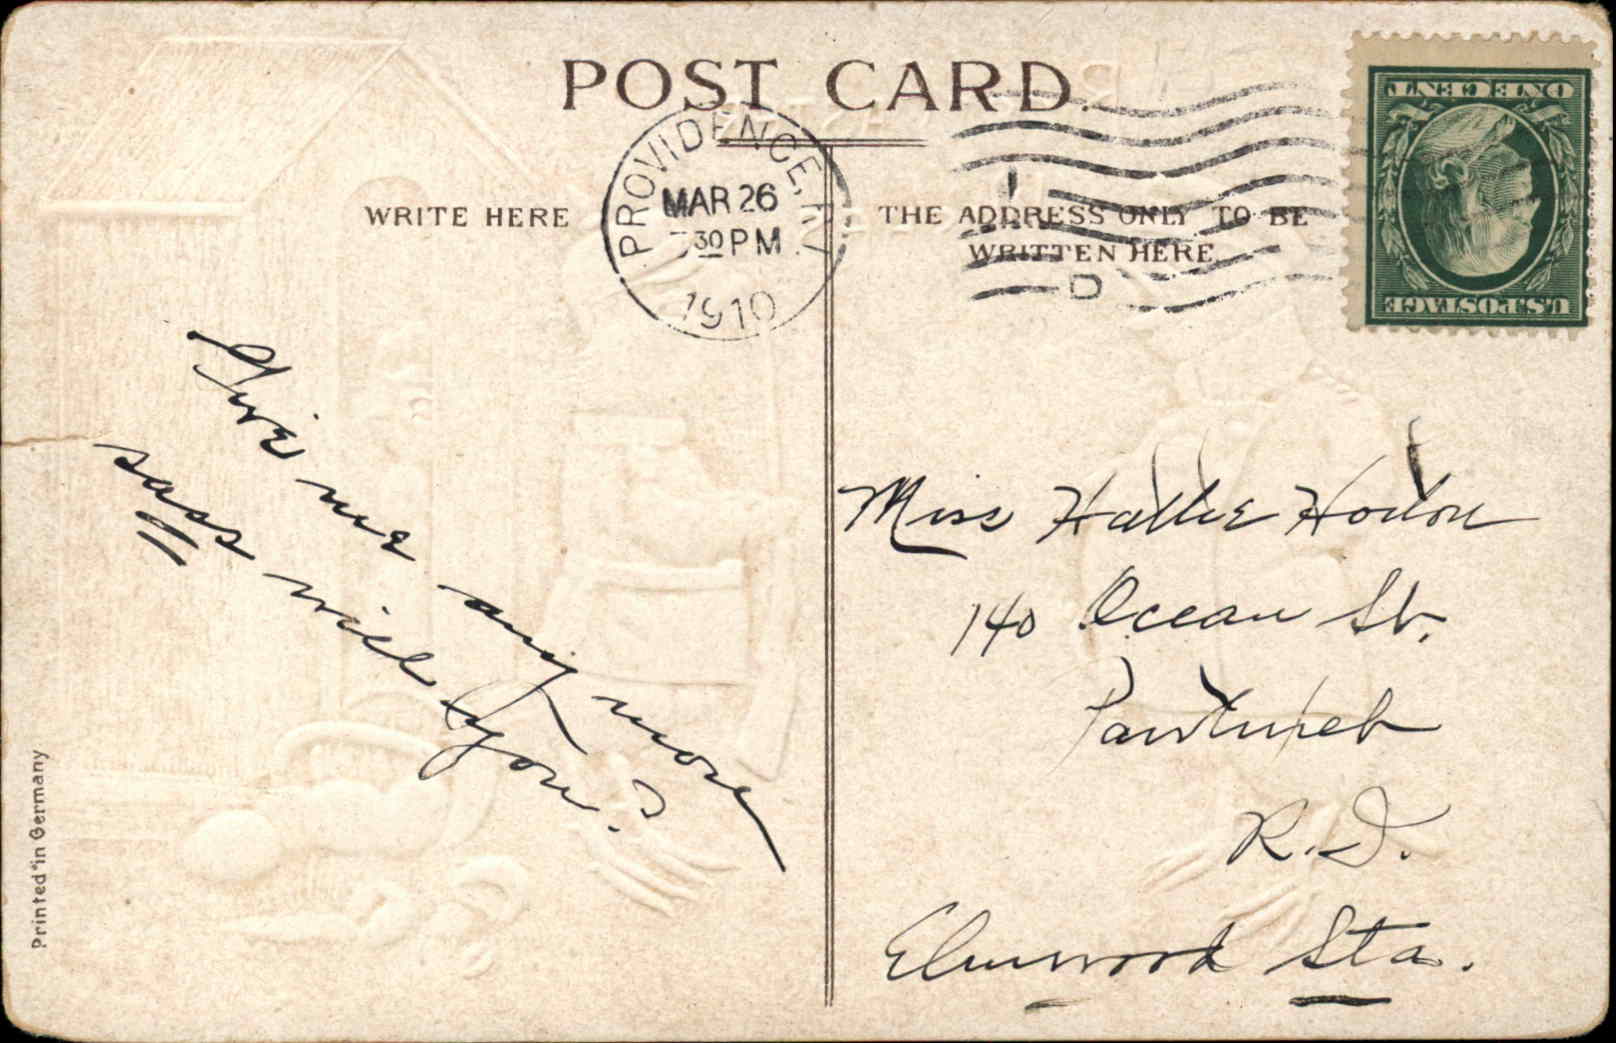 POST CARD.
WRITE HERE
THE ADDRESS ONLY TO BE
WRITTEN HERE
PROVIDENCE, R.I.
MAR 26
30 PM
1910
D
ONE CENT
U.S. POSTAGE
Give me any more
sass will you?
Miss Hattie Horton
140 Ocean St.
Pawtucket
R.I.
Elmwood Sta.
Printed in Germany